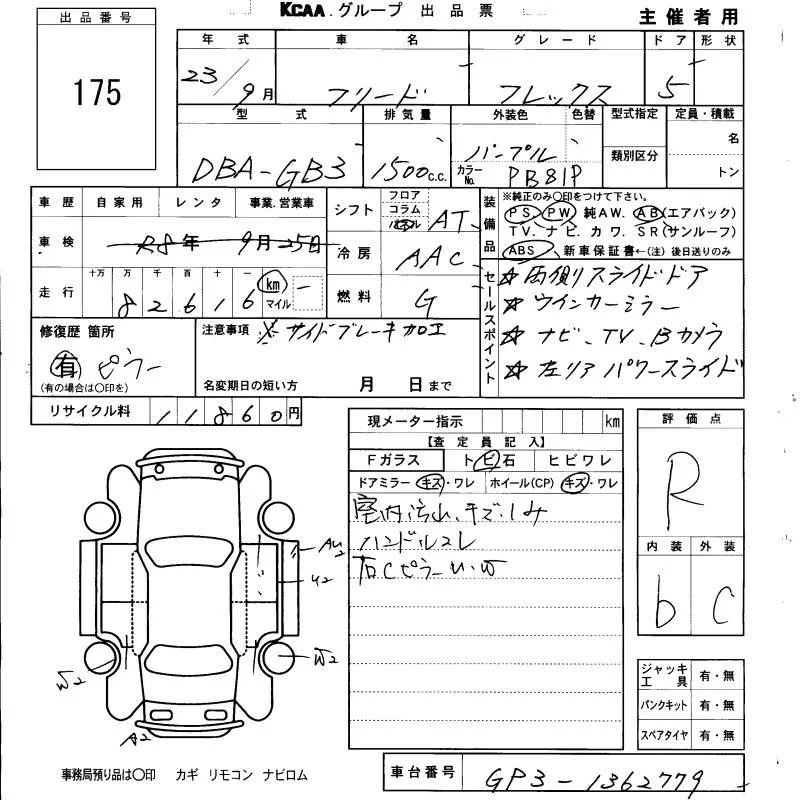 KCAA.グループ 出品票
主催者用
出品番号
175
年式 車名 グレード ドア 形状
23/9月 フリード フレックス 5
型式 排気量 外装色 色替 型式指定 定員・積載
DBA-GB3 1500c.c. パープル カラーNo. PB81P 類別区分 名 トン
車歴 自家用 レンタ 事業.営業車
車検 R8年 9月25日
走行 十万 万 千 百 十 一
82616 km マイル
シフト フロア コラム AT
冷房 AAC
燃料 G
装備品
※純正のみ〇印をつけて下さい。
PS PW 純AW. AB(エアバック)
TV. ナビ カワ SR(サンルーフ)
ABS 新車保証書←(注)後日送りのみ
セールスポイント
☆両側スライドドア
☆ウインカーミラー
☆ナビ、TV、Bカメラ
☆左リアパワースライド
修復歴 箇所
有 ピラー
(有の場合は〇印を)
注意事項 ※サイドブレーキ加工
名変期日の短い方 月 日まで
リサイクル料 11860円
現メーター指示 km
【査定員記入】
Fガラス トビ石 ヒビワレ
ドアミラー キズ・ワレ ホイール(CP) キズ・ワレ
室内汚れ、キズ、シミ
ハンドルスレ
右CピラーU・W
評価点
R
内装 外装
b C
ジャッキ工具 有・無
パンクキット 有・無
スペアタイヤ 有・無
AU2
U2
W2
W2
A2
事務局預り品は〇印 カギ リモコン ナビロム
車台番号 GP3-1362779